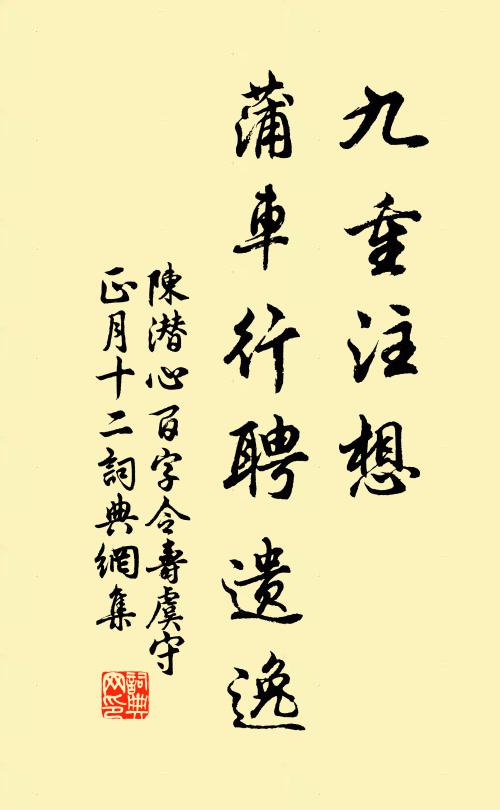 九重注想
蒲車行聘遗逸
陳潜心百字令壽虞守
正月十二詞典網集
詞典网印